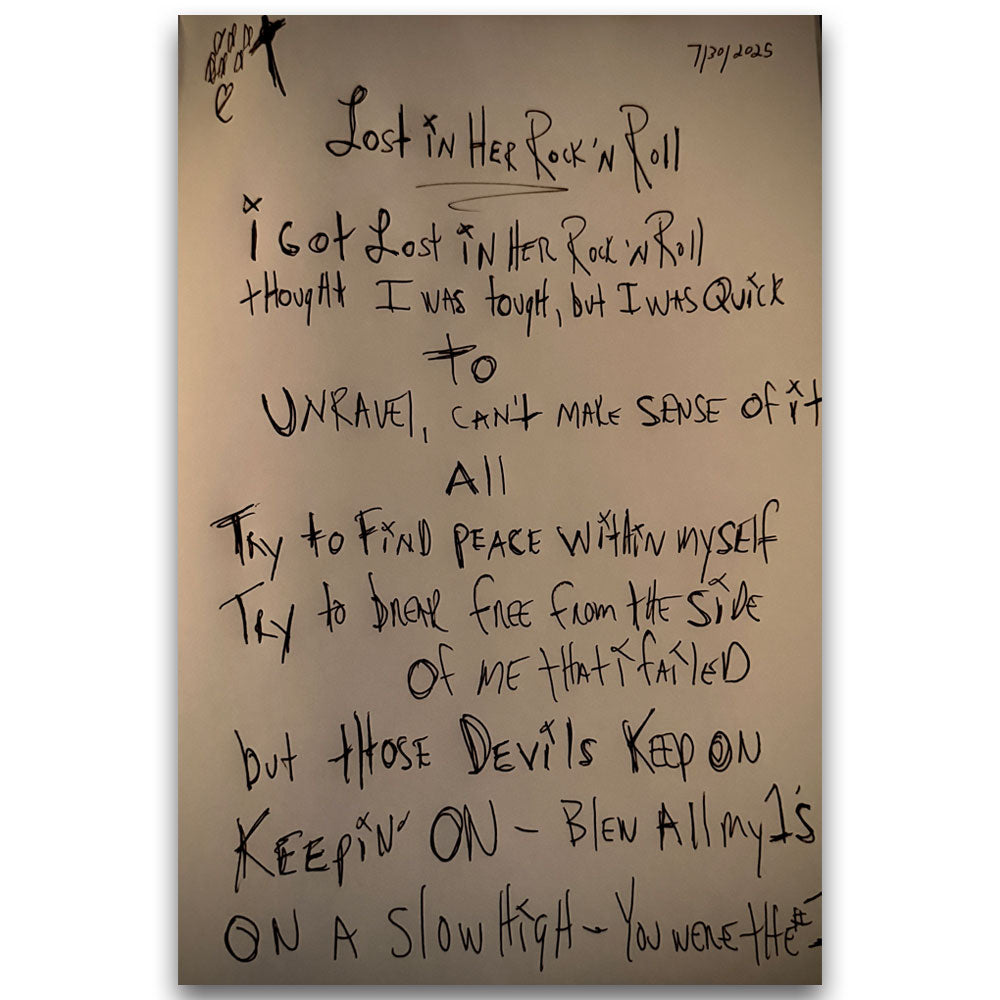 7/30/2025
Lost in Her Rock 'N Roll
i Got Lost in Her Rock 'N Roll
thought I was tough, but I was Quick
to
Unravel, can't make sense of it
All
Try to Find peace within myself
Try to break free from the side
of me that i failed
but those Devils Keep on
Keepin' ON - Blew All my 1's
ON A Slow High - You were the